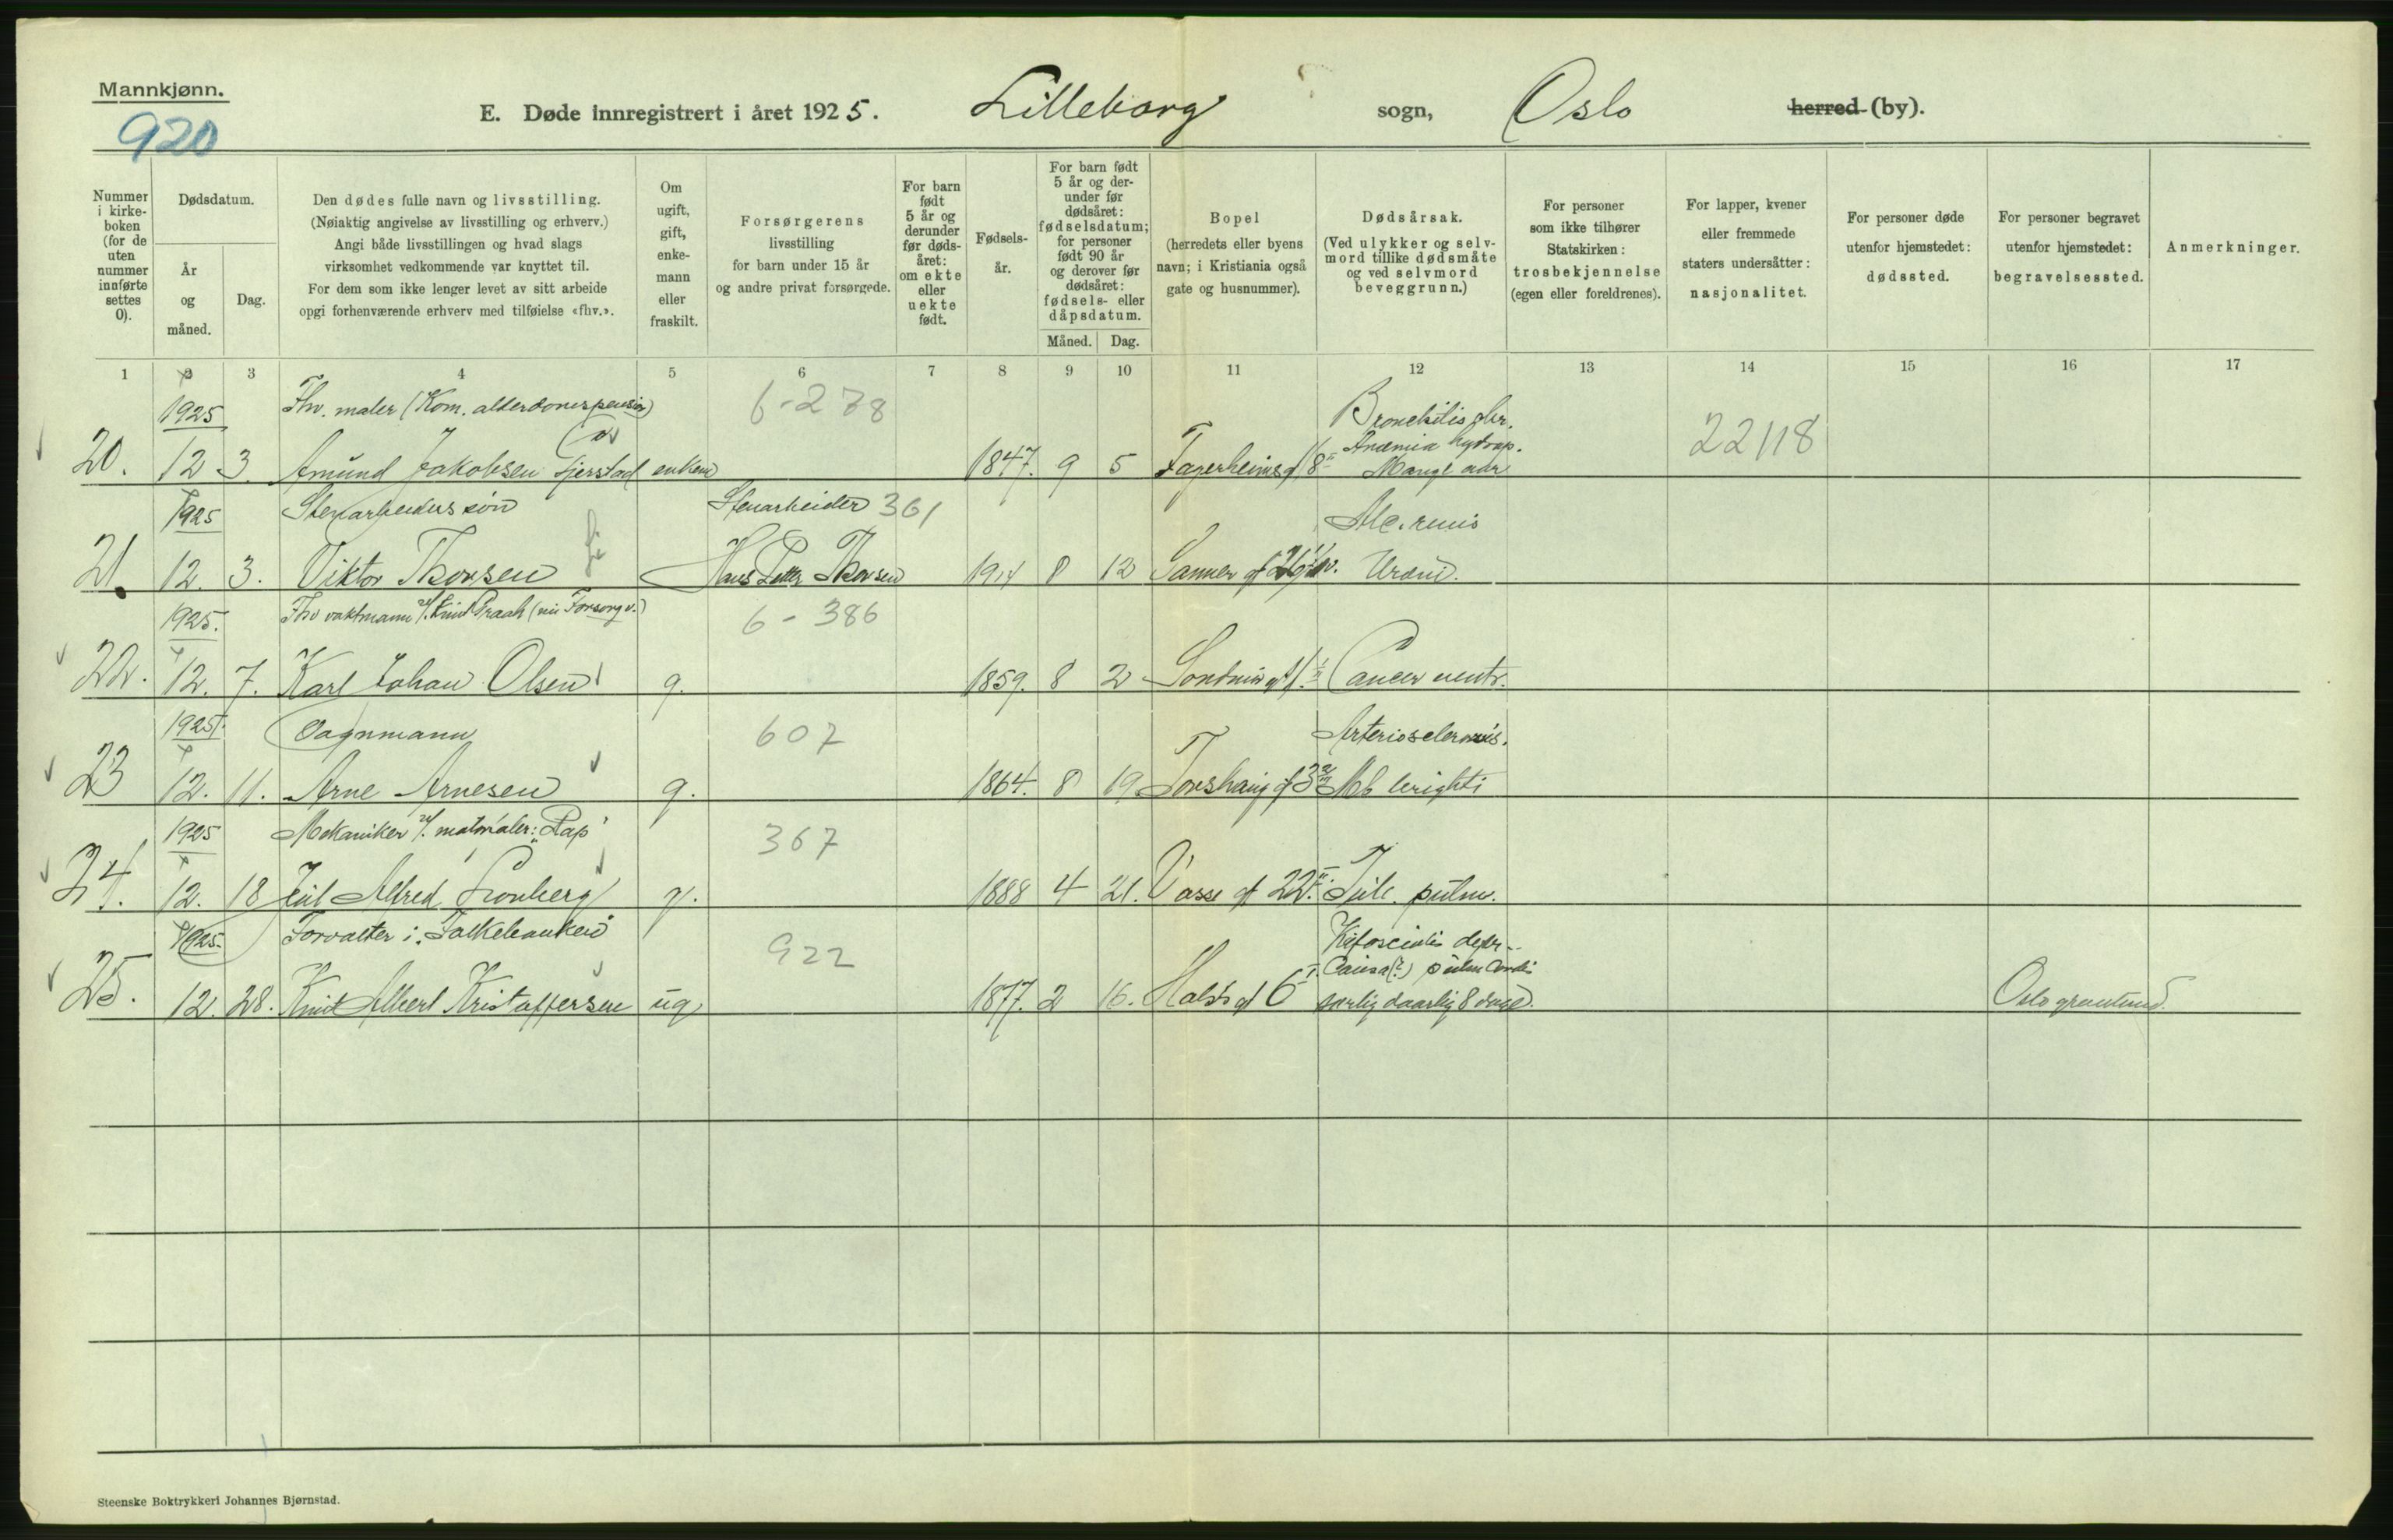 Mannkjønn.
920
E. Døde innregistrert i året 1925. Lilleborg sogn, Oslo herred (by).
Nummer i kirke-boken (for de uten nummer innførte settes 0).
Dødsdatum.
År og måned.
Dag.
Den dødes fulle navn og livsstilling.
(Nøiaktig angivelse av livsstilling og erhverv.)
Angi både livsstillingen og hvad slags
virksomhet vedkommende var knyttet til.
For dem som ikke lenger levet av sitt arbeide
opgi forhenværende erhverv med tilføielse «fhv.».
Om ugift, gift, enke-mann eller fraskilt.
Forsørgerens
livsstilling
for barn under 15 år
og andre privat forsørgede.
For barn født 5 år og derunder før døds-året: om ekte eller uekte født.
Fødsels-år.
For barn født 5 år og der-under før dødsåret: fødselsdatum; for personer født 90 år og derover før dødsåret: fødsels- eller dåpsdatum.
Måned. Dag.
Bopel
(herredets eller byens
navn; i Kristiania også
gate og husnummer).
Dødsårsak.
(Ved ulykker og selv-
mord tillike dødsmåte
og ved selvmord
beveggrunn.)
For personer
som ikke tilhører
Statskirken:
trosbekjennelse
(egen eller foreldrenes).
For lapper, kvener
eller fremmede
staters undersåtter:
nasjonalitet.
For personer døde
utenfor hjemstedet:
dødssted.
For personer begravet
utenfor hjemstedet:
begravelsessted.
Anmerkninger.
1 2 3 4 5 6 7 8 9 10 11 12 13 14 15 16 17
1925 Fhv. maler (Kom. alderdomspension) 6-278 Bronchitis chr.
Anæmia hydrop. 22118
20. 12 3. Amund Jakobsen enkem 1847. 9 5 Fagerheimsgt 8 Mange aar
1925 Stenarbeiders søn Stenarbeider 361 Alc. renis
21. 12. 3. Viktor Thorsen Hans Petter Thorsen 1914 8 12 Sanner gt Uræmi.
1925. Fhv vaktmann v/. Knud Graah (nu Forsorgv.) 6 - 386
22. 12. 7. Karl Johan Olsen g. 1859. 8 2 Cancer ventr.
1925. Vognmann 607 Arteriosclerosis.
23 12. 11. Arne Arnesen g. 1864. 8 19 Torshaug gt 3 Mb brighti
1925 Mekaniker v/. "Rap" 367
24. 12. 18 Juul Alfred Lonberg g. 1888 4 21. Vasse gt 22 Tub. pulm.
1925. Forvalter i "Falkebanken" 922 Kifoscioliis
Causa (?) pulm cordis
25. 12. 28. Knut Albert Kristoffersen ug 1877. 2 16. Hals's gt 6 særlig daarlig 8 dage. Oslo gravlund.
Steenske Boktrykkeri Johannes Bjørnstad.